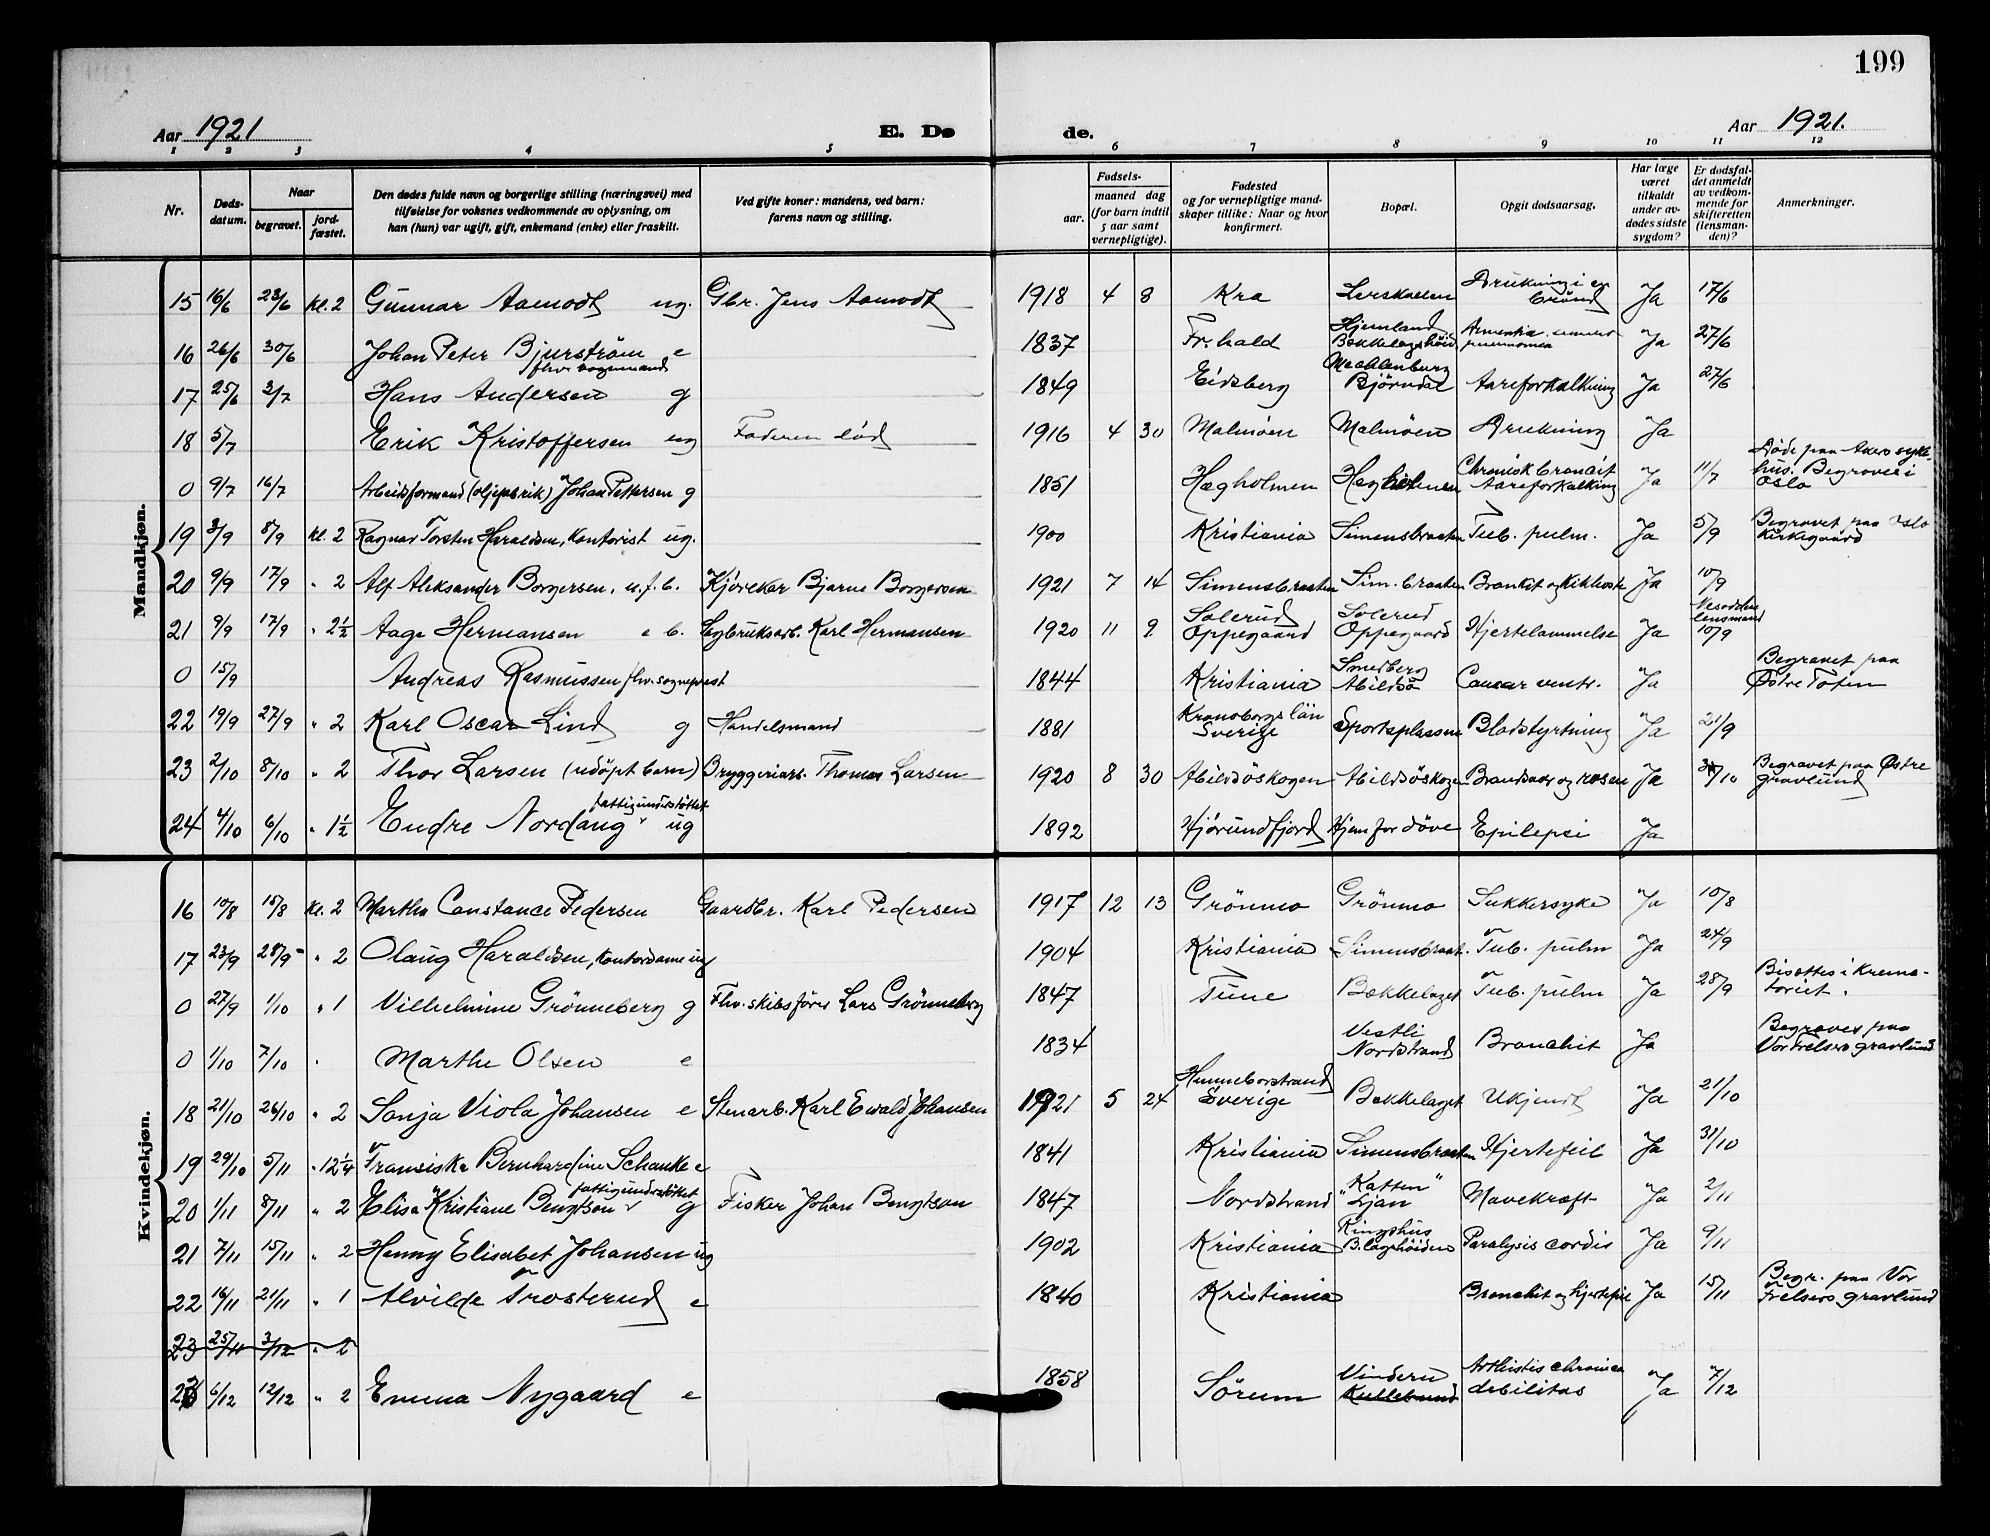 199
Aar 1921
E. Dø
de.
Aar 1921.
1 2 3 4 5 6 7 8 9 10 11 12
Nr.
Døds-
datum.
Naar
begravet.
jord-
fæstet.
Den dødes fulde navn og borgerlige stilling (næringsvei) med
tilføielse for voksnes vedkommende av oplysning, om
han (hun) var ugift, gift, enkemand (enke) eller fraskilt.
Ved gifte koner: mandens, ved barn:
farens navn og stilling.
Fødsels-
aar.
maaned dag
(for barn indtil
5 aar samt
vernepligtige).
Fødested
og for vernepligtige mand-
skaper tillike: Naar og hvor
konfirmert.
Bopæl.
Opgit dødsaarsag.
Har læge
været
tilkaldt
under av-
dødes sidste
sygdom?
Er dødsfal-
det anmeldt
av vedkom-
mende for
skifteretten
(lensman-
den)?
Anmerkninger.
Mandkjøn.
15 16/6 23/6 kl. 2 Gunnar Aamodt ug. Gbr. Jens Aamodt 1918 4 8 Kra Lerskallen Drukning i en brønd Ja 17/6
16 26/6 30/6 Johan Peter Bjurström e 1837 Fr.hald Hjemland Bekkelagshöid pneumonia Ja 27/6
17 25/6 2/7 Hans Andersen g 1849 Eidsberg Mechlenburg Björndal Aareforkalkning Ja 27/6
18 5/7 Erik Kristoffersen ug Faderen död 1916 4 30 Malmöen Malmöen Drukning Ja
0 9/7 16/7 Arbeidsformand (oljefabrik) Johan Pettersen g 1851 Hægholmen Hægholmen Chronisk broncit Aareforkalkning Ja 11/7 Døde paa Akers syke- hus. Begraves i Oslo
19 3/9 8/9 kl. 2 Ragnar Torsten Haraldsen, Kontorist ug. 1900 Kristiania Simensbraaten Tub. pulm. Ja 5/9 Begravet paa Oslo Kirkegaard
20 9/9 17/9 " 2 Alf Aleksander Borgersen, u. f. b. Kjörekar Bjarne Borgersen 1921 7 14 Simensbraaten Sim.braaten Bronkit og Kikhoste Ja 10/9
21 9/9 17/9 " 2½ Aage Hermansen e b. Tegbruksarb. Karl Hermansen 1920 11 9 Solerud Oppegaard Solerud Oppegaard Hjertelammelse Ja Nesodden lensmand 10/9
0 15/9 Andreas Rasmussen fhv. sogneprest 1844 Kristiania Smedberg Abildsö Cancer ventr. Ja Begravet paa Østre Toten
22 19/9 27/9 " 2 Karl Oscar Lind g Handelsmand 1881 Kronobergs län Sverige Sportsplassen Blodstyrtning Ja 21/9
23 2/10 8/10 " 2 Thor Larsen (udöpt barn) Bryggeriarb. Thomas Larsen 1920 8 30 Abildsöskogen Abildsöskogen Brandsaar og rosen Ja 3/10 Begravet paa Østre gravlund
24 4/10 6/10 " 1½ Endre Nordang fattigunderstöttet ug 1892 Hjörundfjord Hjem for döve Epilepsi Ja
Kvindekjøn.
16 10/8 15/8 Kl. 2 Martha Constance Pedersen Gaardbr. Karl Pedersen 1917 12 13 Grönmo Grönmo Sukkersyke Ja 10/8
17 23/9 28/9 " 2 Olaug Haraldsen, Kontordame ug 1904 Kristiania Simensbraat. Tub. pulm Ja 24/9
0 27/9 1/10 " 1 Vilhelmine Grönneberg g Fhv. skibsfører Lars Grönneberg 1847 Tune Bækkelaget Tub. pulm Ja 28/9 Bisættes i Krema- toriet.
0 1/10 7/10 " Marthe Olsen e 1834 Vestli Nordstrand Bronchit Ja Begraves paa Vor Frelsers gravlund
18 21/10 26/10 " 2 Sonja Viola Johansen e Stenarb. Karl Ewald Johansen 1921 5 24 Hunneborstrand Sverige Bekkelaget Ukjendt Ja 21/10
19 29/10 5/11 " 12¼ Fransiska Bernhardine Schanke e 1841 Kristiania Simensbraaten Hjertefeil Ja 31/10
20 1/11 8/11 " 2 Elisa Kristiane Bengtson fattigunderstöttet g Fisker Johan Bengtson 1847 Nordstrand "Katten" Ljan Mavekræft Ja 2/11
21 7/11 15/11 " 2 Henny Elisabet Johansen ug 1902 Kristiania Ringshus B.lagshöiden Paralysis cordis Ja 9/11
22 16/11 21/11 " 1 Alvilde Trosterud e 1840 Kristiania Bronchit og hjertefeil Ja 15/11 Begr. paa Vor Frelsers gravlund
23 25/11 3/12 " 2
23 6/12 12/12 " 2 Emma Nygaard e 1858 Sörum Vindern Kullebund chronica debilitas Ja 7/12